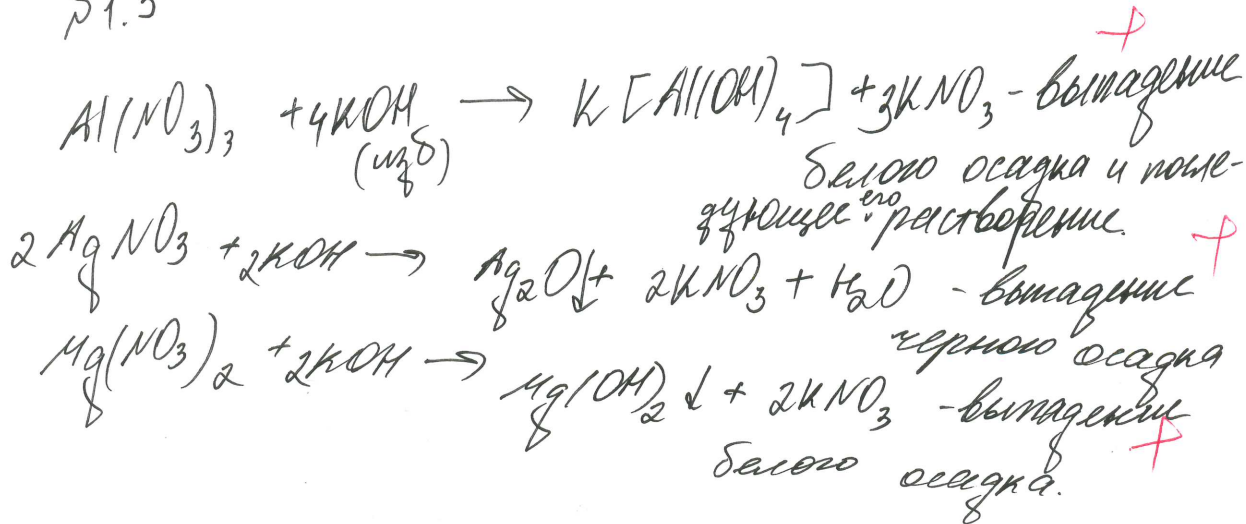 Al(NO3)3 + 4KOH → K[Al(OH)4] + 3KNO3 - выпадение
(изб)
белого осадка и после-
дующее его растворение.
2AgNO3 + 2KOH → Ag2O↓ + 2KNO3 + H2O - выпадение
черного осадка
Mg(NO3)2 + 2KOH → Mg(OH)2↓ + 2KNO3 - выпадение
белого осадка.